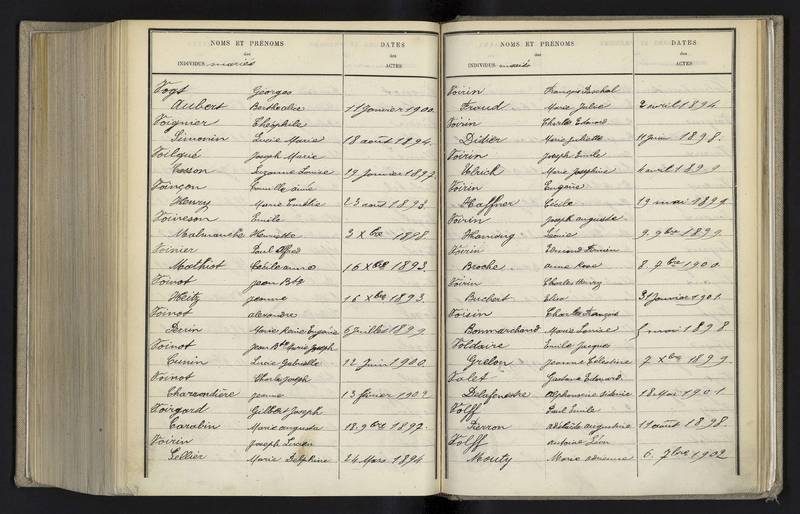 NOMS ET PRÉNOMS
des
INDIVIDUS mariés
DATES
des
ACTES
Vogt Georges
Aubert Berthe Alice 11 Janvier 1900.
Voignier Théophile
Simonin Lucie Marie 18 août 1894.
Voilqué Joseph Marie
Cosson Suzanne Louise 19 Janvier 1897.
Voinçon Camille Aimé
Henry Marie 23 août 1893
Voineson Emile
Malmanche Henriette 3 Xbre 1898.
Voinier Paul Alfred
Mathiot Cécile Anna 16 Xbre 1893.
Voinot Jean Bte
Heitz Jeanne 16 Xbre 1893.
Voinot Alexandre
Perrin Marie Eugénie 6 Juillet 1899
Voinot Jean Bte Marie Joseph
Cunin Lucie Gabrielle 12 Juin 1900.
Voinot Charles Joseph
Charcondière Jeanne 13 février 1902
Voirgard Gilbert Joseph
Carabin Marie Augusta 18. 9bre 1897.
Voirin Joseph Lucien
Sellier Marie Delphine 24 Mars 1894
NOMS ET PRÉNOMS
des
INDIVIDUS mariés
DATES
des
ACTES
Voirin François Paschal
Fraud Marie Julie 2 avril 1894
Voirin Charles Edouard
Didier Marie Juliette 11 Juin 1898.
Voirin Joseph Emile
Ulrich Marie Joséphine 4 avril 1899
Voirin Eugène
Haffner Cécile 19 mai 1899
Voirin Joseph Auguste
Léonie 9. 9bre 1899.
Voirin
Broche Anna Rose 8. 7bre 1900.
Voirin Charles Henry
Buchert Elise 31 Janvier 1901.
Voisin Charles François
Bonmarchand Marie Louise mai 1898
Voldaire Emile Jacques
Grelon Jeanne Célestine 7 Xbre 1899.
Volet Gustave Edouard.
Delafenestre Alphonsine 18 Mai 1901
Volff Paul Emile
Pierron Adélaïde Augustine août 1898.
Volff Antoine Léon
Mouty Marie Adrienne 6. 7bre 1902